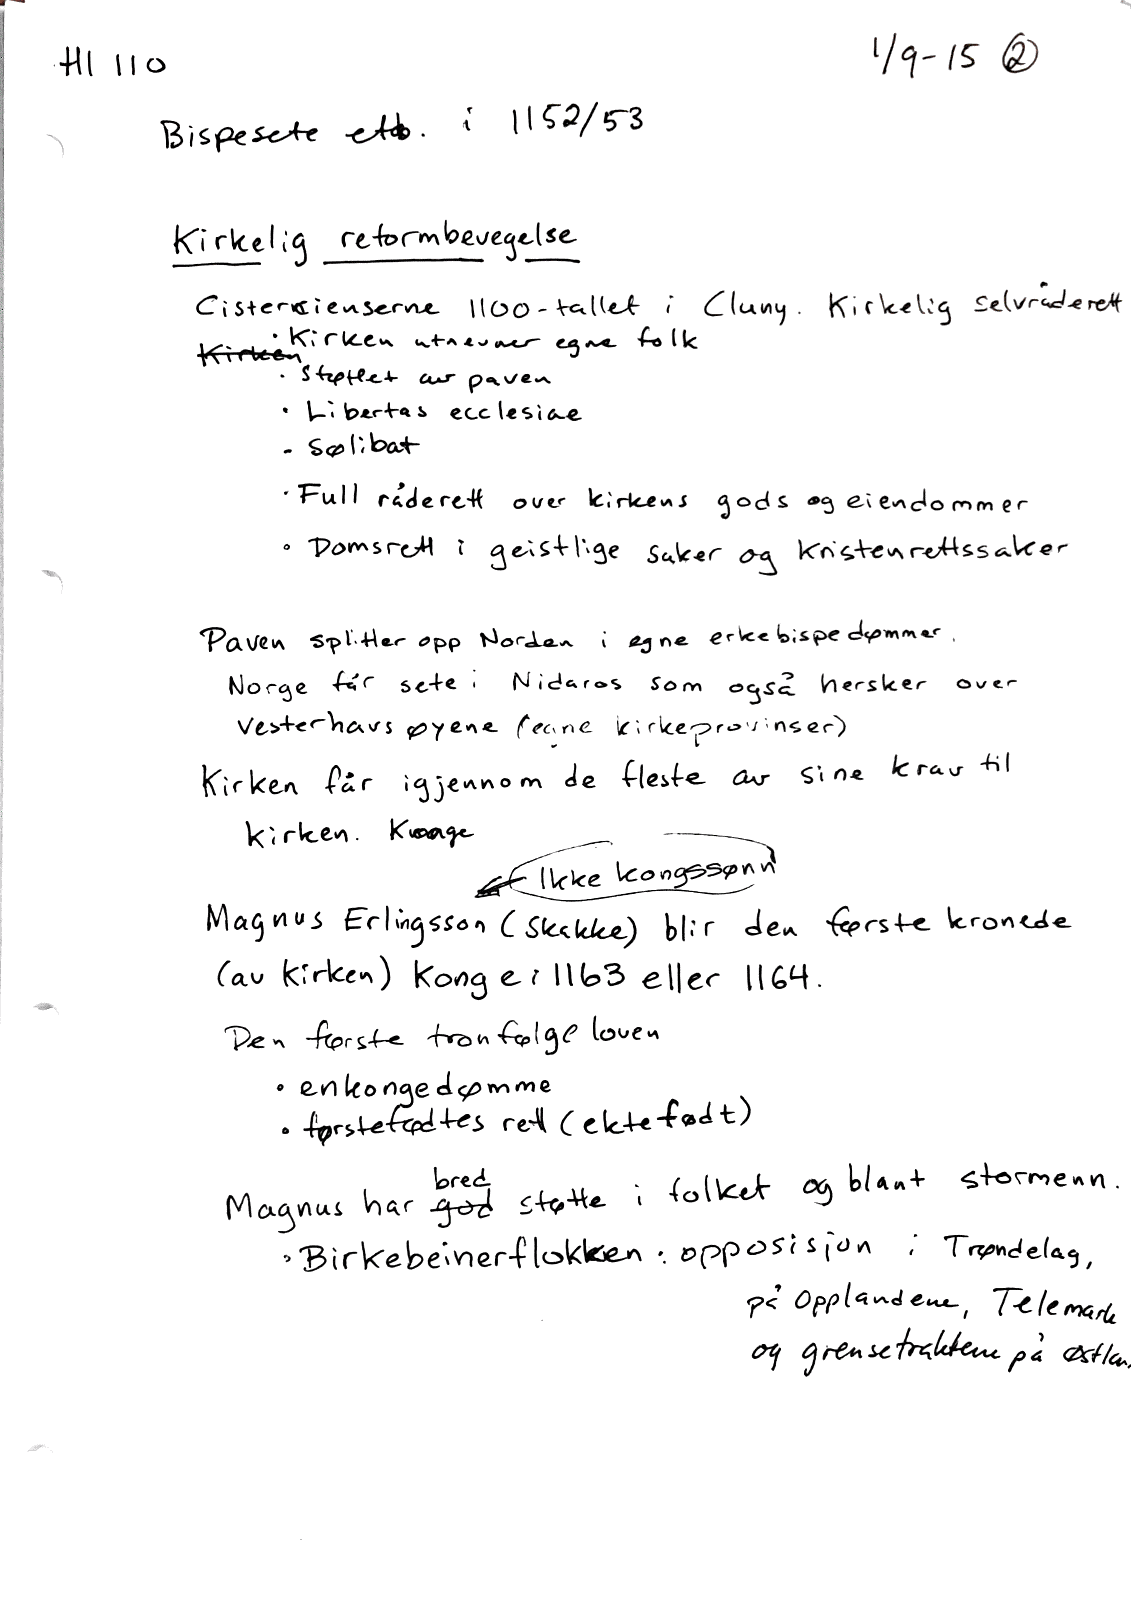 HI 110
1/9-15 2
Bispesete etb. i 1152/53
Kirkelig reformbevegelse
Cistercienserne 1100-tallet i Cluny. Kirkelig selvråderett
· Kirken utnevner egne folk
Kirken
· Støttet av paven
· Libertas ecclesiae
- Sølibat
· Full råderett over kirkens gods og eiendommer
· Domsrett i geistlige saker og kristenrettssaker
Paven splitter opp Norden i egne erkebispedømmer.
Norge får sete i Nidaros som også hersker over
Vesterhavsøyene (egne kirkeprovinser)
Kirken får igjennom de fleste av sine krav til
kirken. Konge
Ikke kongssønn
Magnus Erlingsson (Skakke) blir den første kronede
(av kirken) Konge i 1163 eller 1164.
Den første tronfølgeloven
· enkongedømme
· førstefødtes rett (ektefødt)
bred
Magnus har god støtte i folket og blant stormenn.
· Birkebeinerflokken: opposisjon i Trøndelag,
på Opplandene, Telemark
og grensetraktene på Østlan